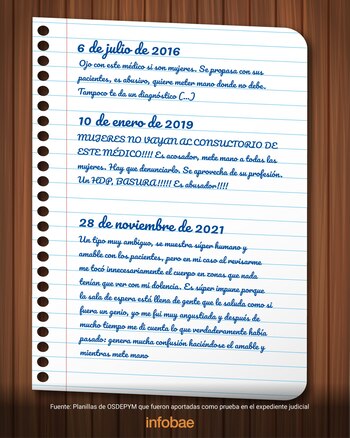 6 de julio de 2016
Ojo con este médico si son mujeres. Se propasa con sus
pacientes, es abusivo, quiere meter mano donde no debe.
Tampoco te da un diagnóstico (...)
10 de enero de 2019
MUJERES NO VAYAN AL CONSULTORIO DE
ESTE MÉDICO!!!! Es acosador, mete mano a todas las
mujeres. Hay que denunciarlo. Se aprovecha de su profesión.
Un HDP, BASURA!!!!! Es abusador!!!!
28 de noviembre de 2021
Un tipo muy ambiguo, se muestra súper humano y
amable con los pacientes, pero en mi caso al revisarme
me tocó innecesariamente el cuerpo en zonas que nada
tenían que ver con mi dolencia. Es súper impune porque
la sala de espera está llena de gente que le saluda como si
fuera un genio, yo me fui muy angustiada y después de
mucho tiempo me di cuenta lo que verdaderamente había
pasado: genera mucha confusión haciéndose el amable y
mientras mete mano
Fuente: Planillas de OSDEPYM que fueron aportadas como prueba en el expediente judicial
infobae